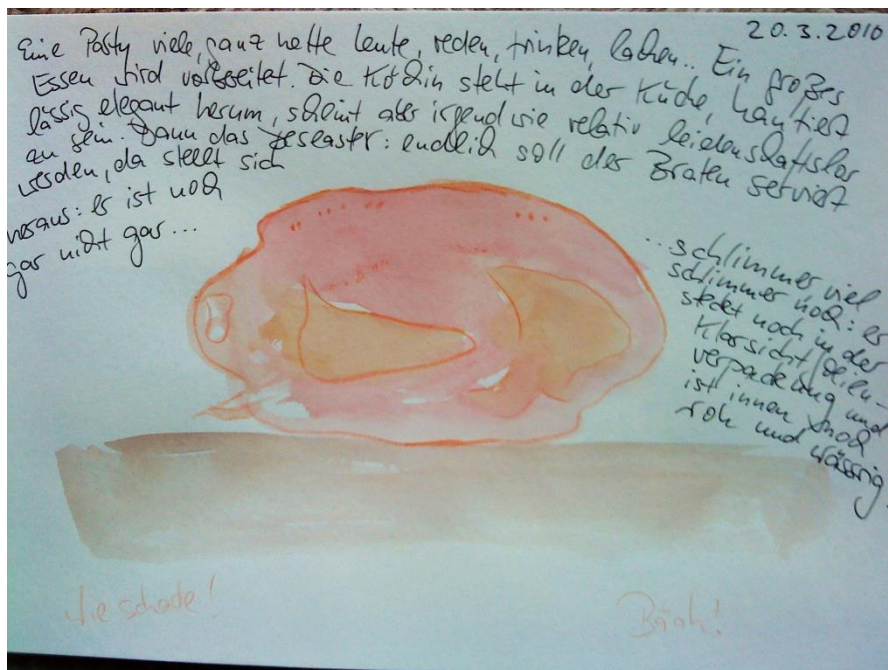 20.3.2010
Eine Party viele, ganz nette Leute, reden, trinken, lachen.. Ein großes
Essen wird vorbereitet. Die Köchin steht in der Küche, hantiert
lässig elegant herum, scheint aber irgendwie relativ leidenschaftslos
zu sein. Dann das Deseaster: endlich soll der Braten serviert
werden, da stellt sich
heraus: er ist noch
gar nicht gar...
...schlimmer viel
schlimmer noch: er
steckt noch in der
Klarsichtfolien-
verpackung und
ist innen noch
roh und wässrig.
Wie schade!
Bääh!